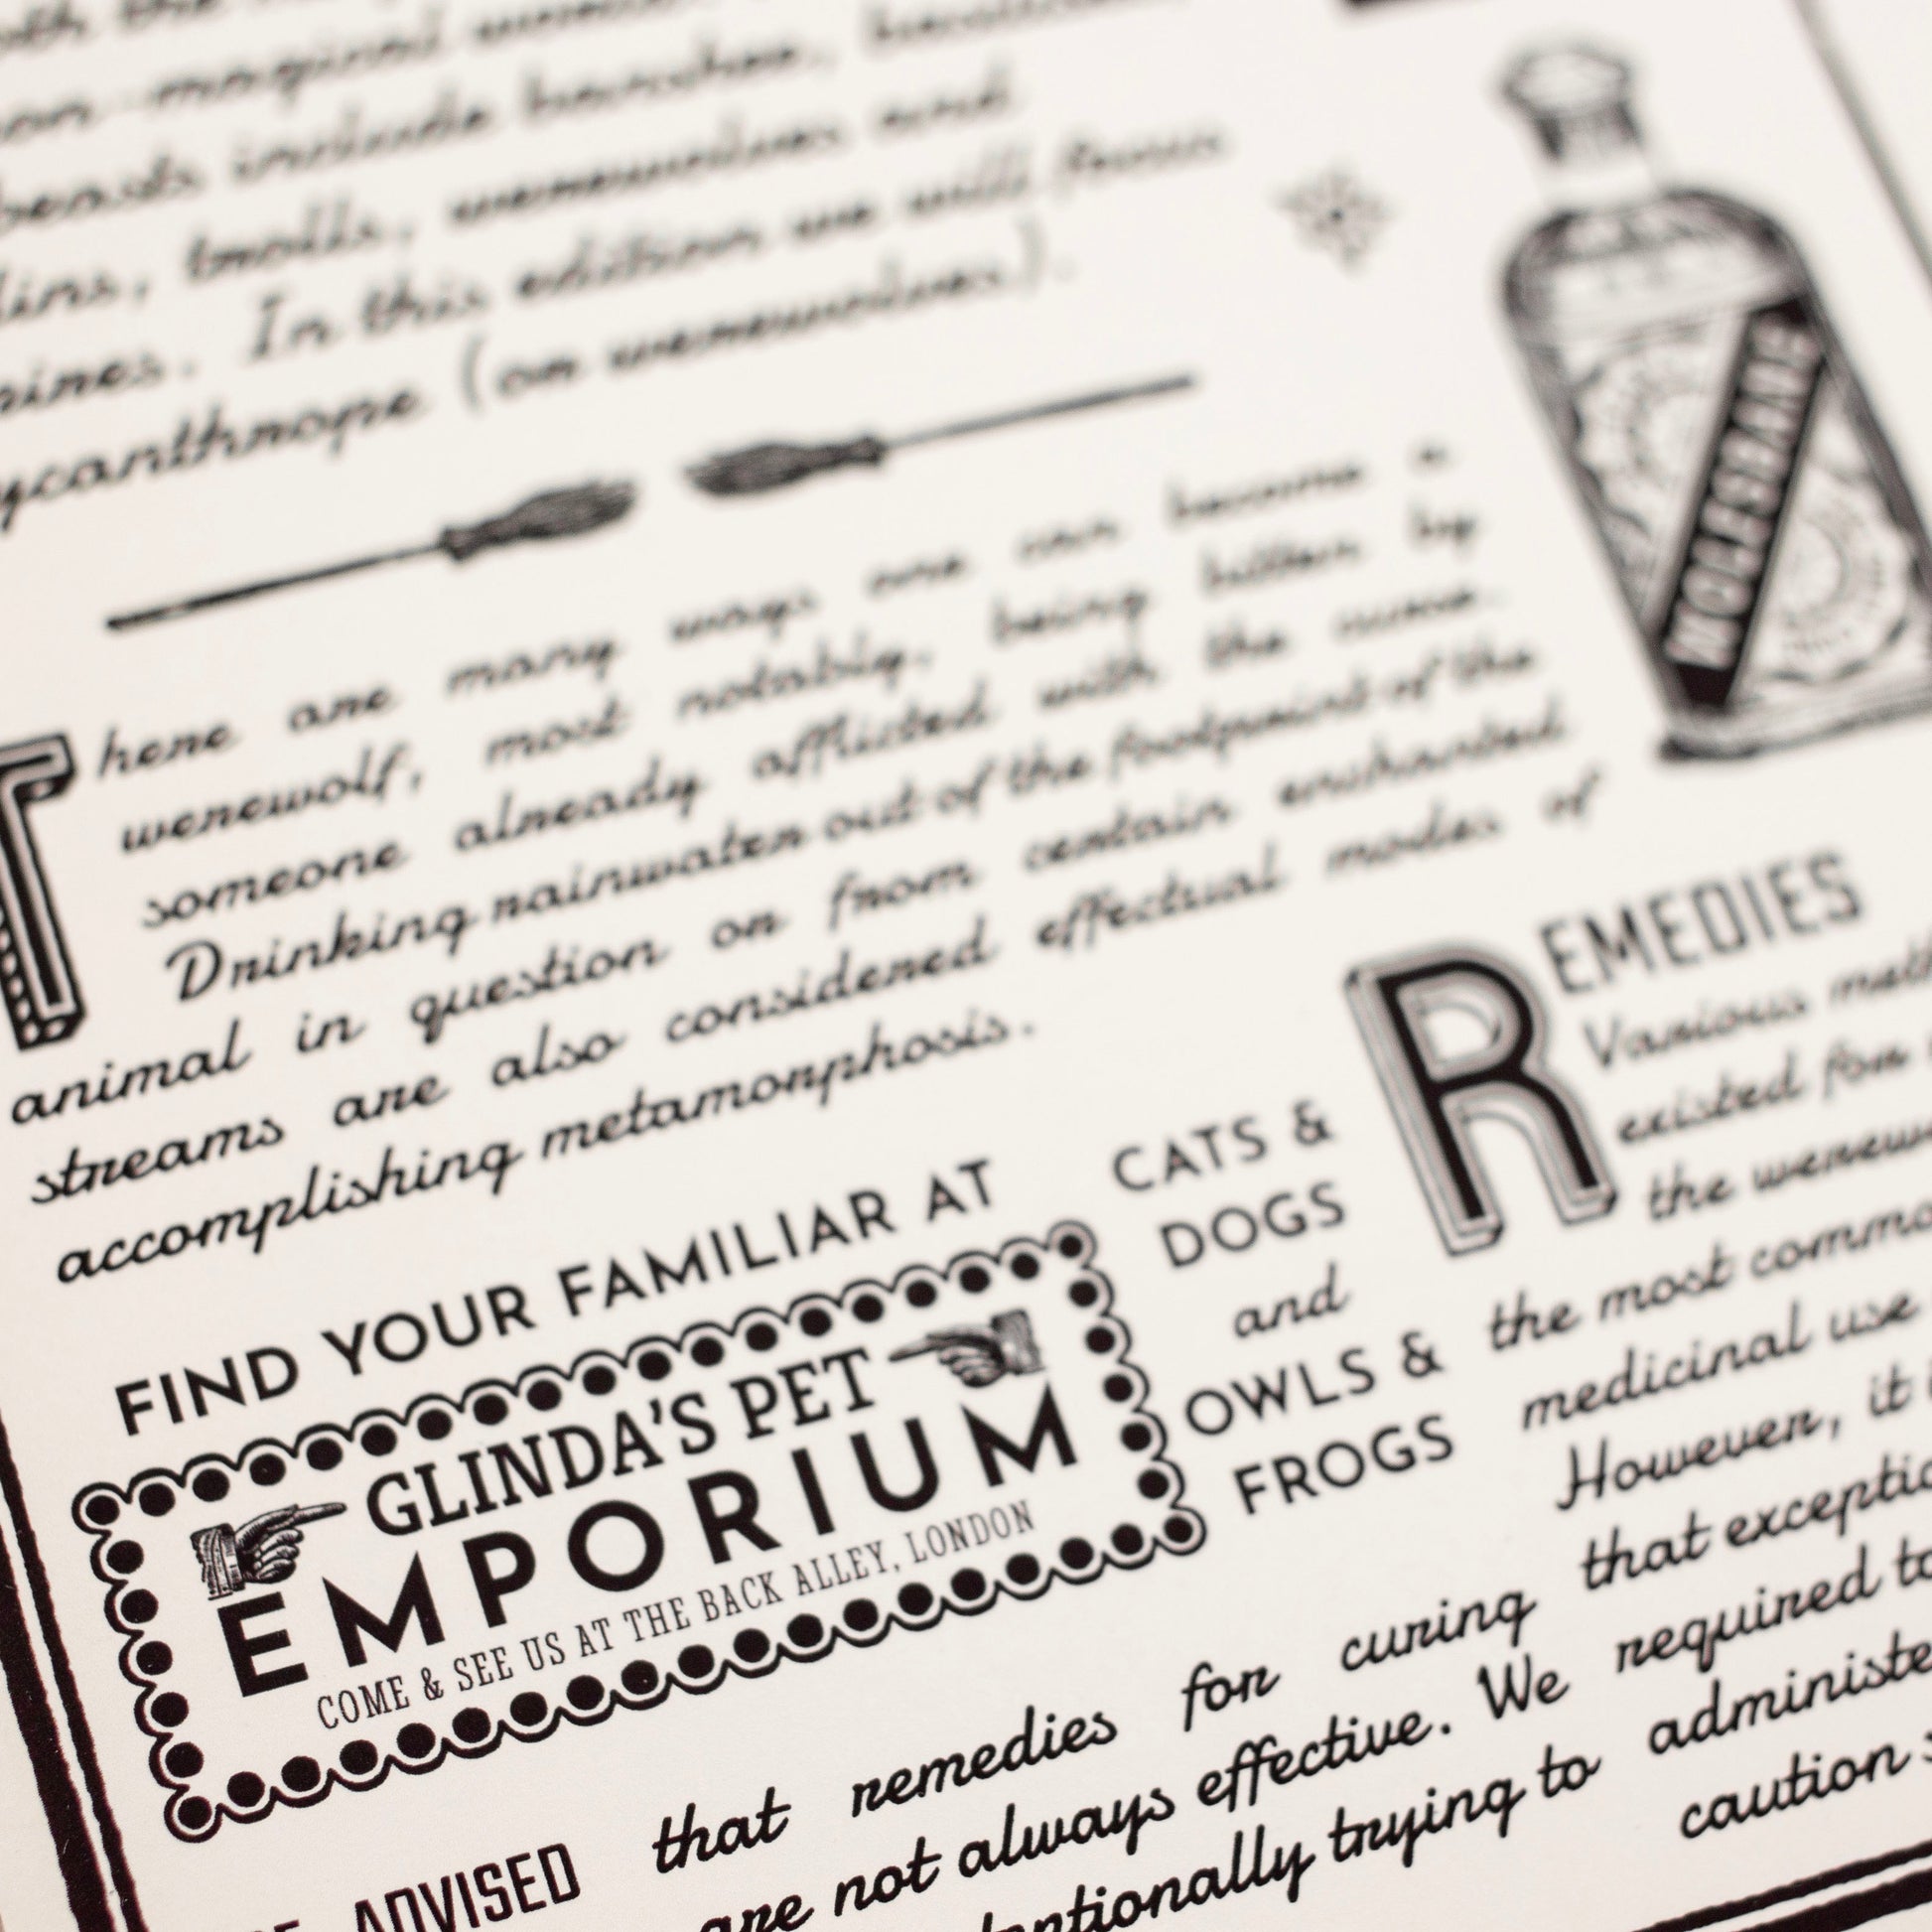 on-magical
beasts include banshee,
lins, trolls, werewolves and
pines. In this edition we will focus
ycanthrope (or werewolves).
There are many ways one can become a
werewolf, most notably, being bitten by
someone already afflicted with the curse.
Drinking rainwater out of the footprint of the
animal in question or from certain enchanted
streams are also considered effectual modes of
accomplishing metamorphosis.
WOLFSBANE
FIND YOUR FAMILIAR AT
GLINDA'S PET
EMPORIUM
COME & SEE US AT THE BACK ALLEY, LONDON
CATS &
DOGS
and
OWLS &
FROGS
REMEDIES
Various meth
existed for
the werew
the most commo
medicinal use
However, it i
that exceptio
ADVISED that remedies for curing
are not always effective. We required to
entionally trying to administe
caution